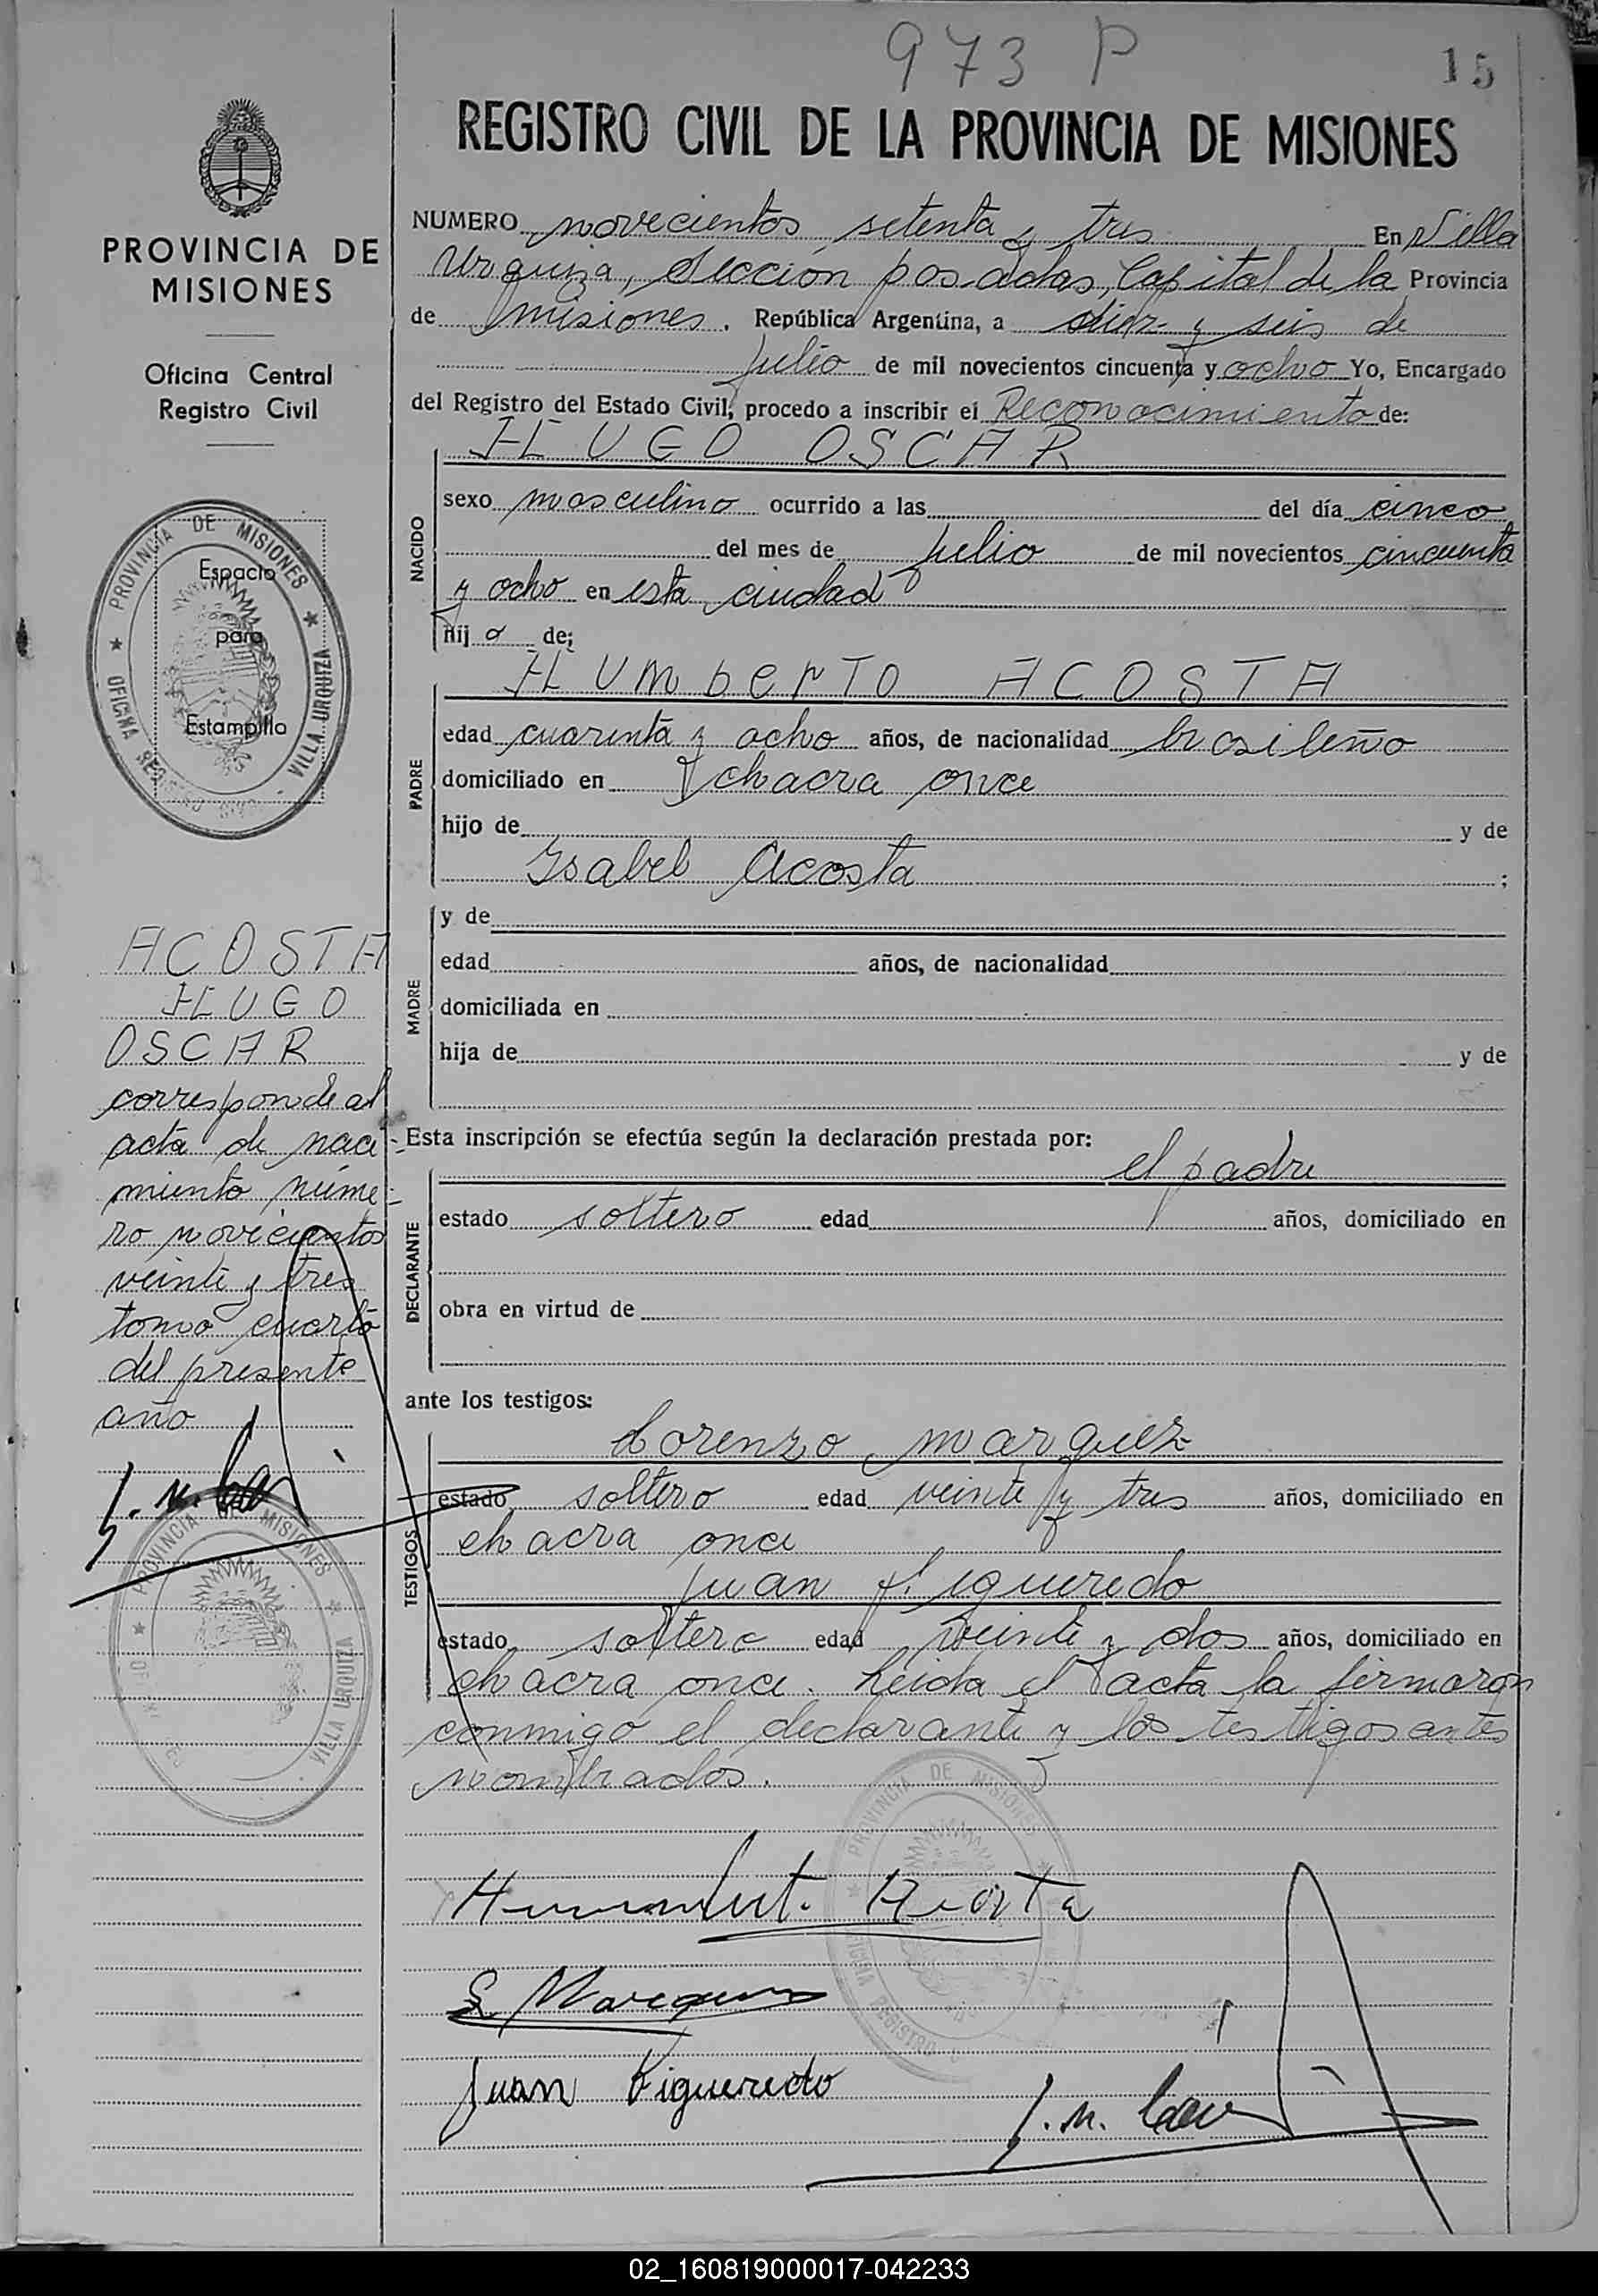 973 P
15
REGISTRO CIVIL DE LA PROVINCIA DE MISIONES
PROVINCIA DE
MISIONES
Oficina Central
Registro Civil
PROVINCIA DE MISIONES
OFICINA REGISTRO CIVIL
VILLA URQUIZA
Espacio
para
Estampilla
ACOSTA
HUGO
OSCAR
corresponde al
acta de naci-
miento núme-
ro novecientos
veinte y tres
tomo cuarto
del presente
año
PROVINCIA DE MISIONES
VILLA URQUIZA
NUMERO novecientos setenta y tres En Villa
Urquiza, Sección posadas, Capital de la Provincia
de misiones. República Argentina, a diez y seis de
julio de mil novecientos cincuenta y ocho Yo, Encargado
del Registro del Estado Civil, procedo a inscribir el Reconocimiento de:
NACIDO
HUGO OSCAR
sexo masculino ocurrido a las del día cinco
del mes de julio de mil novecientos cincuenta
y ocho en esta ciudad
hijo de;
PADRE
HUmberTO ACOSTA
edad cuarenta y ocho años, de nacionalidad brasileño
domiciliado en chacra once
hijo de y de
Isabel Acosta ;
MADRE
y de
edad años, de nacionalidad
domiciliada en
hija de y de
Esta inscripción se efectúa según la declaración prestada por:
DECLARANTE
el padre
estado soltero edad años, domiciliado en
obra en virtud de
ante los testigos:
TESTIGOS
Lorenzo marquez
estado soltero edad veinte y tres años, domiciliado en
chacra once
juan figueredo
estado soltero edad veinte y dos años, domiciliado en
chacra once. Leida el acta la firmaron
conmigo el declarante y los testigos antes
nombrados.
PROVINCIA DE MISIONES
OFICINA REGISTRO
Humbert. Acosta
L Marquez
Juan Figueredo
02_160819000017-042233